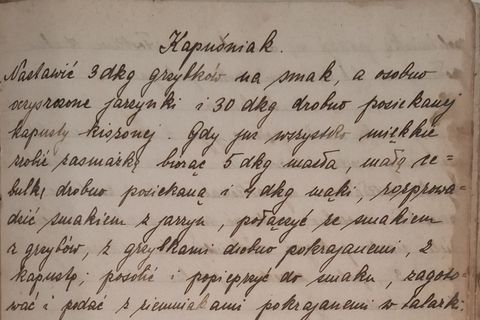 Kapuśniak.
Nastawić 3 dkg grzybków na smak, a osobno
oczyszczone jarzynki i 30 dkg drobno posiekanej
kapusty kiszonej. Gdy już wszystko miękkie
zrobić zasmażkę biorąc 5 dkg masła, małą ce=
bulkę drobno posiekaną i 4 dkg mąki, rozprowa=
dzić smakiem z jarzyn, połączyć ze smakiem
z grzybów, z grzybkami drobno pokrajanemi, z
kapustą; posolić i popieprzyć do smaku, zagoto=
wać i podać z ziemniakami pokrajanemi w talarki.